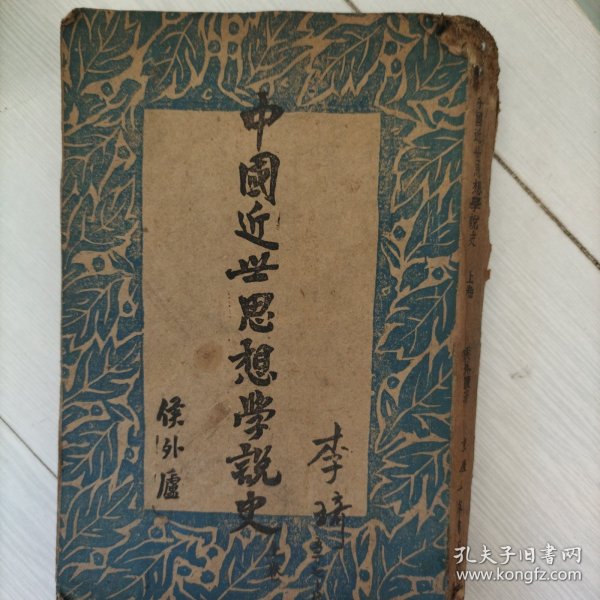 中國近世思想学説史
上卷
侯外廬
李琦
中國近世思想學説史 上卷 侯外廬著
孔夫子旧书网
www.kongfz.com